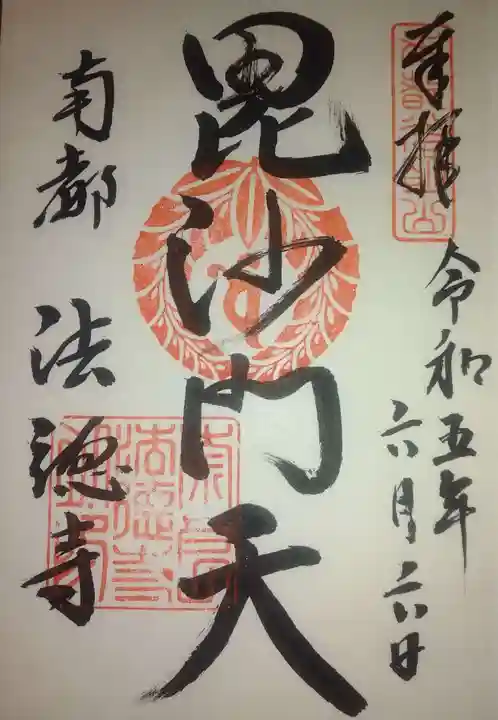 奉拝
令和五年
六月六日
毘沙門天
南都 法徳寺